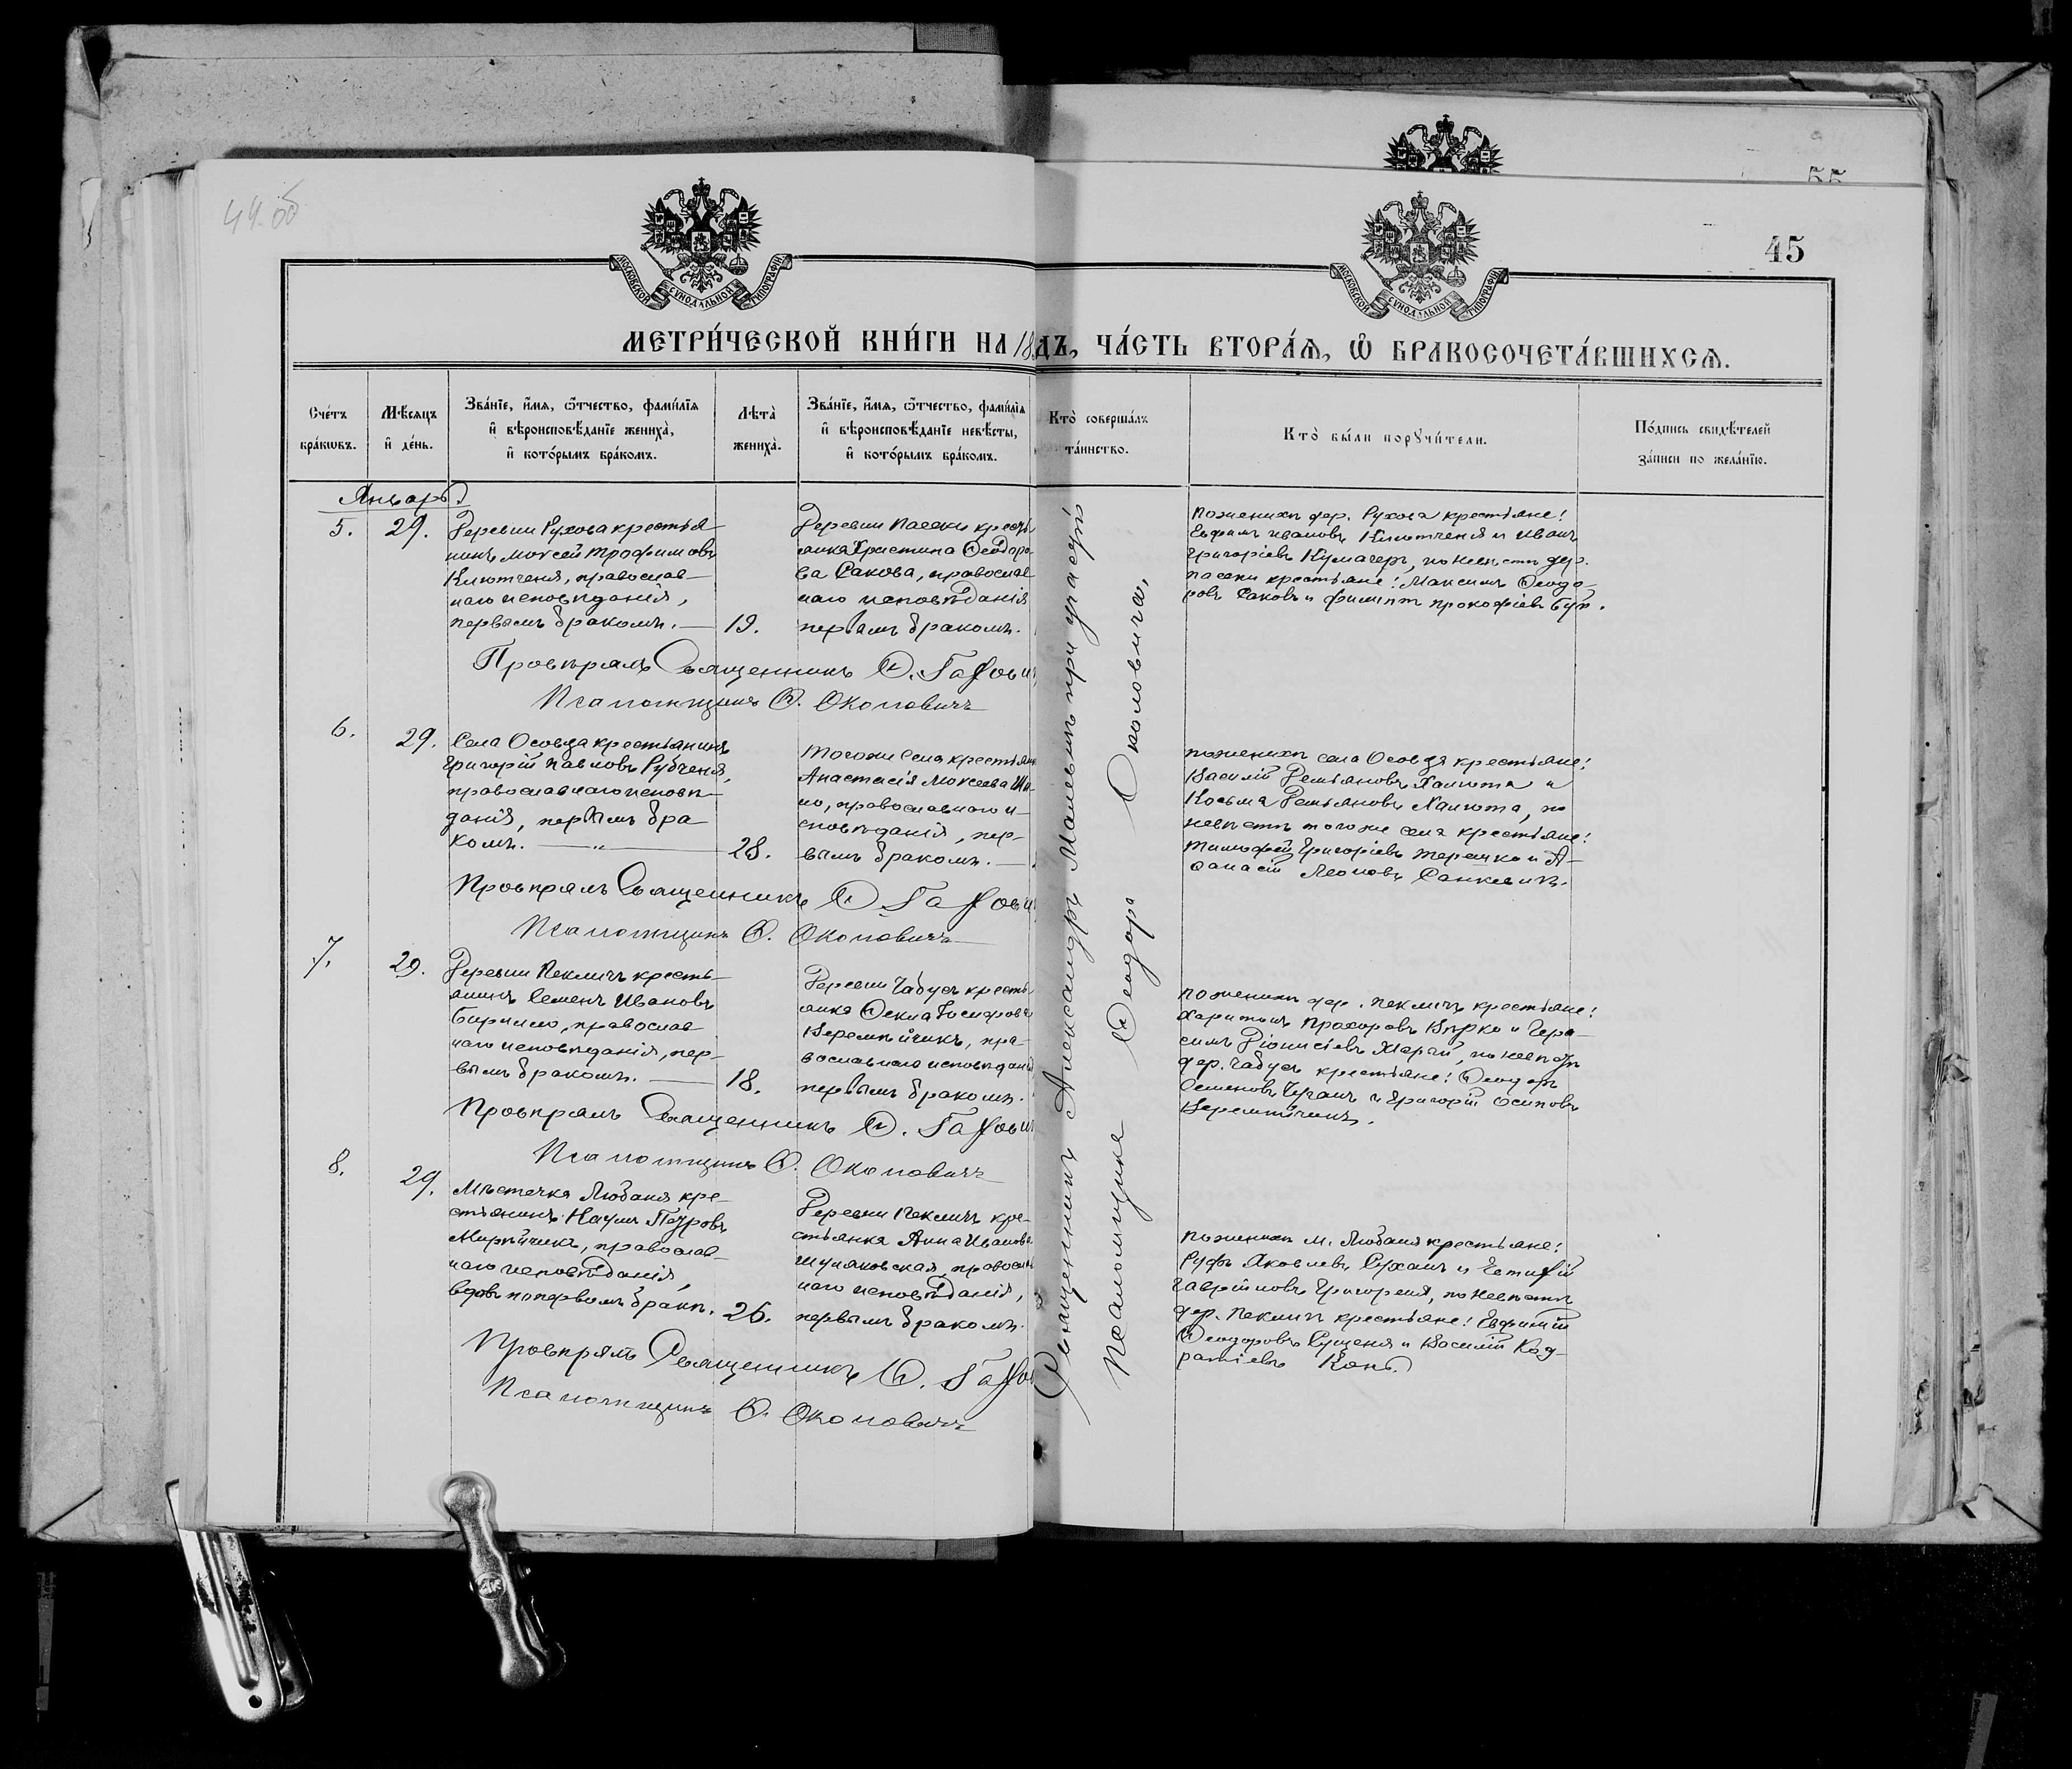 44 об
МОСКОВСКОЙ СѴНОДАЛЬНОЙ ТИПОГРАФІИ
МОСКОВСКОЙ СѴНОДАЛЬНОЙ ТИПОГРАФІИ
55
45
МЕТРИ́ЧЕСКОЙ КНИ́ГИ НА 18
ДЪ, ЧА́СТЬ ВТОРА́Ѧ, Ѡ҆ БРАКОСОЧЕТА́ВШИХСѦ.
Сче́тъ
бра́кѡвъ.
Мѣ́сяцъ
и҆ де́нь.
Зва́нїе, и҆́мя, ѻ҆́тчество, фами́лїя
и҆ вѣроисповѣ́данїе жениха̀,
и҆ кото́рымъ бра́комъ.
Лѣта̀
жениха̀.
Зва́нїе, и҆́мя, ѻ҆́тчество, фами́лїя
и҆ вѣроисповѣ́данїе невѣ́сты,
и҆ кото́рымъ бра́комъ.
Кто̀ соверша́лъ
та́инство.
Кто̀ бы́ли порꙋчи́тели.
По́дпись свидѣ́телей
за́писи по жела́нїю.
Январь
5.
29.
Деревни Рухова крестья-
нинъ Моѵсей Трофимовъ
Клютченя, православ-
наго исповѣданія,
первымъ бракомъ.
19.
Деревни Пасеки кресть
янка Христина Ѳеодоро-
ва Сакова, православ
наго исповѣданія
первымъ бракомъ.
По женихѣ дер. Рухова крестьяне:
Евфимъ Ивановъ Клютченя и Иванъ
Григоріевъ Кумачеръ, по невѣстѣ дер.
Пасеки крестьяне: Максимъ Ѳеодо-
ровъ Саковъ и Филиппъ Прокофіевъ Буй.
Провѣрялъ Священникъ
Псаломщикъ Ѳ. Околовичъ
6.
29.
Села Осовца крестьянинъ
Григорій Павловъ Рубченя,
православнаго исповѣ-
данія, первымъ бра-
комъ.
28.
Того же села крестьян
Анастасія Моѵсеева
но, православнаго и-
сповѣданія, пер-
вымъ бракомъ.
По женихѣ села Осовца крестьяне:
Василій Демьяновъ Халюта и
Косьма Демьяновъ Халюта, по
невѣстѣ того же села крестьяне:
Тимофей Григоріевъ Терешко и А-
ѳанасій Леоновъ Санкевичъ.
Провѣрялъ Священникъ
Псаломщикъ Ѳ. Околовичъ
7.
29.
Деревни Пекличъ кресть-
янинъ Семенъ Ивановъ
Бирилло, православ
наго исповѣданія, пер-
вымъ бракомъ.
18.
Деревни Чабусъ кресть
янка Ѳекла Іосифова
Веремѣйчикъ, пра-
вославнаго исповѣдан
первымъ бракомъ.
По женихѣ дер. Пекличъ крестьяне:
Харитонъ Прохоровъ Вірко и Гера-
симъ Діонисіевъ, по невѣстѣ
дер. Чабусъ крестьяне: Ѳеодоръ
Семеновъ и Григорій Осиповъ
Веремѣйчикъ.
Провѣрялъ Священникъ
Псаломщикъ Ѳ. Околовичъ
8.
29.
Мѣстечка Любаня кре-
стьянинъ Наумъ Петровъ
Мирѣйчикъ, православ-
наго исповѣданія,
вдовъ по первомъ бракѣ.
26.
Деревни Пекличъ кре-
стьянка Анна Иванова
Шуляковская, правосл
наго исповѣданія,
первымъ бракомъ.
По женихѣ м. Любаня крестьяне:
Руфъ Яковлевъ Суханъ и
Гавріиловъ Григореня, по невѣстѣ
дер. Пекличъ крестьяне: Евфимій
Ѳеодоровъ Сущеня и Василій Код-
ратіевъ Конь.
Провѣрялъ Священникъ
Псаломщикъ Ѳ. Околовичъ
Священникъ Александръ Малевичъ при участіи
Псаломщика Ѳеодора Околовича,